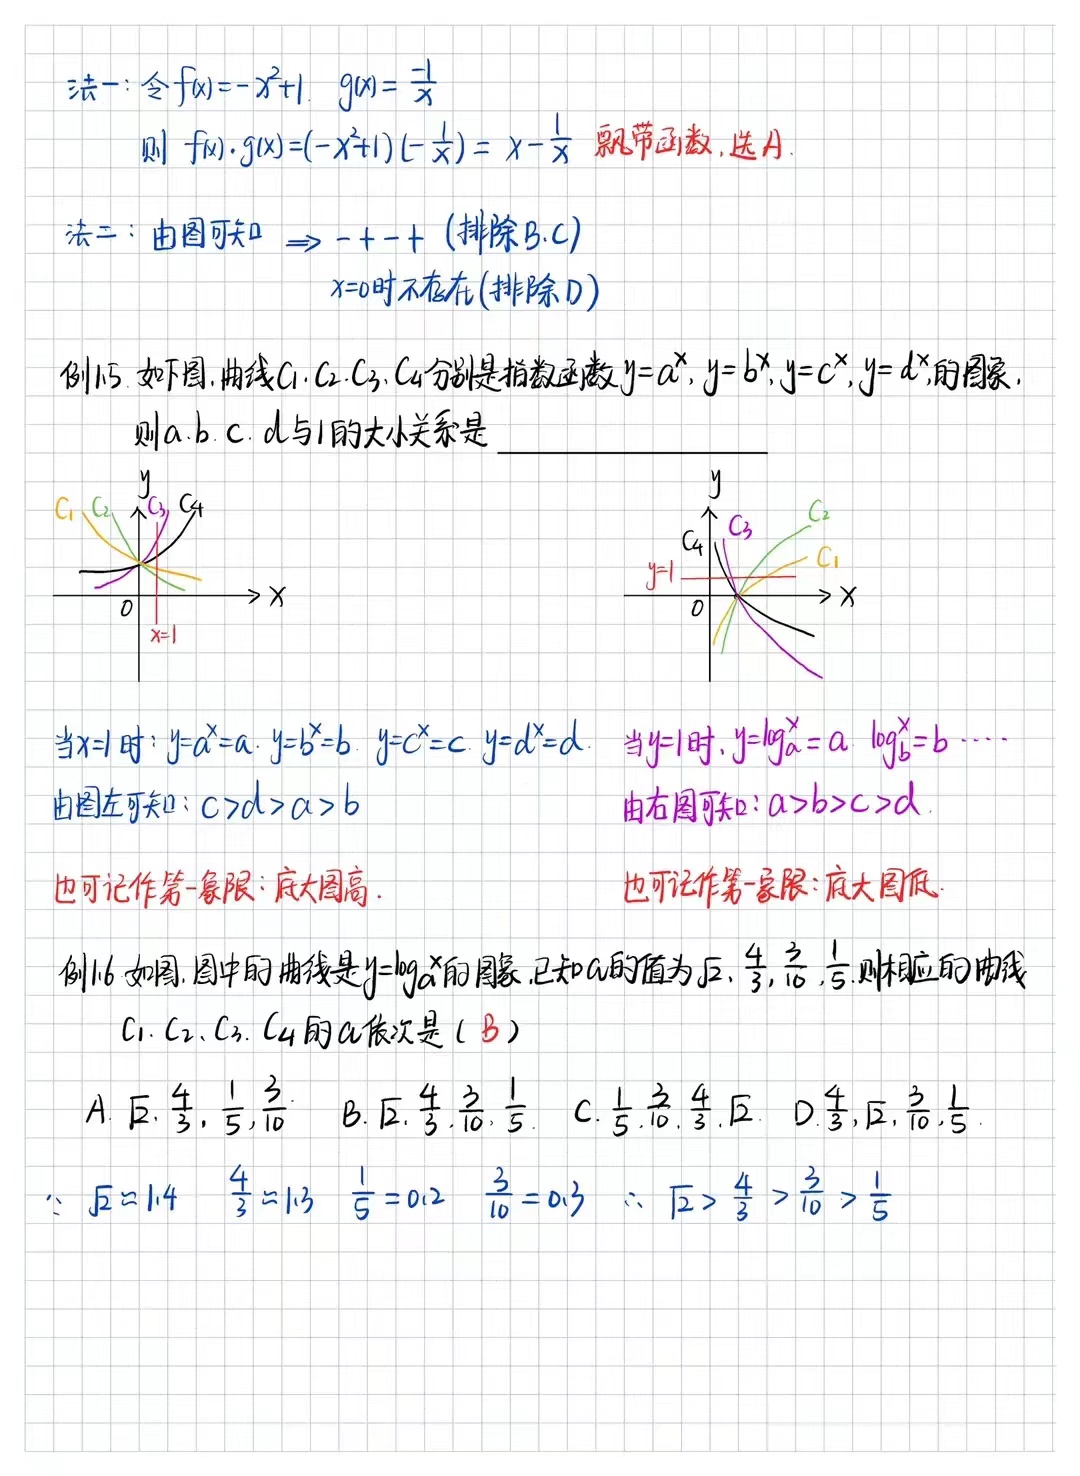 法一: 令f(x)=-x²+1. g(x)=\frac{-1}{x}
则 f(x)·g(x)=(-x²+1)(-\frac{1}{x})= x-\frac{1}{x} 飘带函数,选A.
法二: 由图可知 ⇒ -+-+ (排除B.C)
x=0时不存在(排除D)
例1.5 如下图,曲线C₁.C₂.C₃.C₄分别是指数函数y=aˣ, y=bˣ, y=cˣ, y=dˣ,的图象,
则a.b.c.d与1的大小关系是
y
C₁ C₂ C₃ C₄
0 X
x=1
y
C₂
C₃
C₄
C₁
y=1
0 X
当x=1时: y=aˣ=a. y=bˣ=b. y=cˣ=c. y=dˣ=d.
由图左可知: c>d>a>b
也可记作第一象限: 底大图高.
当y=1时, y=log_a^x=a. log_b^x=b ····
由右图可知: a>b>c>d.
也可记作第一象限: 底大图底.
例1.6 如图,图中的曲线是y=log_a^x的图象,已知a的值为√2, \frac{4}{3}, \frac{3}{10}, \frac{1}{5}.则相应的曲线
C₁.C₂、C₃.C₄的a依次是 ( B )
A. √2, \frac{4}{3}, \frac{1}{5}, \frac{3}{10} B. √2, \frac{4}{3}, \frac{3}{10}, \frac{1}{5}. C. \frac{1}{5}, \frac{3}{10}, \frac{4}{3}, √2. D. \frac{4}{3}, √2, \frac{3}{10}, \frac{1}{5}.
∵ √2≈1.4 \frac{4}{3}≈1.3 \frac{1}{5}=0.2 \frac{3}{10}=0.3 ∴ √2 > \frac{4}{3} > \frac{3}{10} > \frac{1}{5}